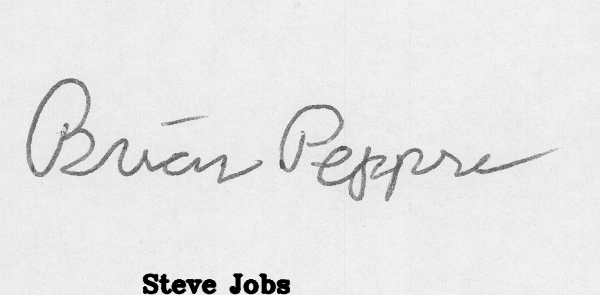 Brian Peppre
Steve Jobs